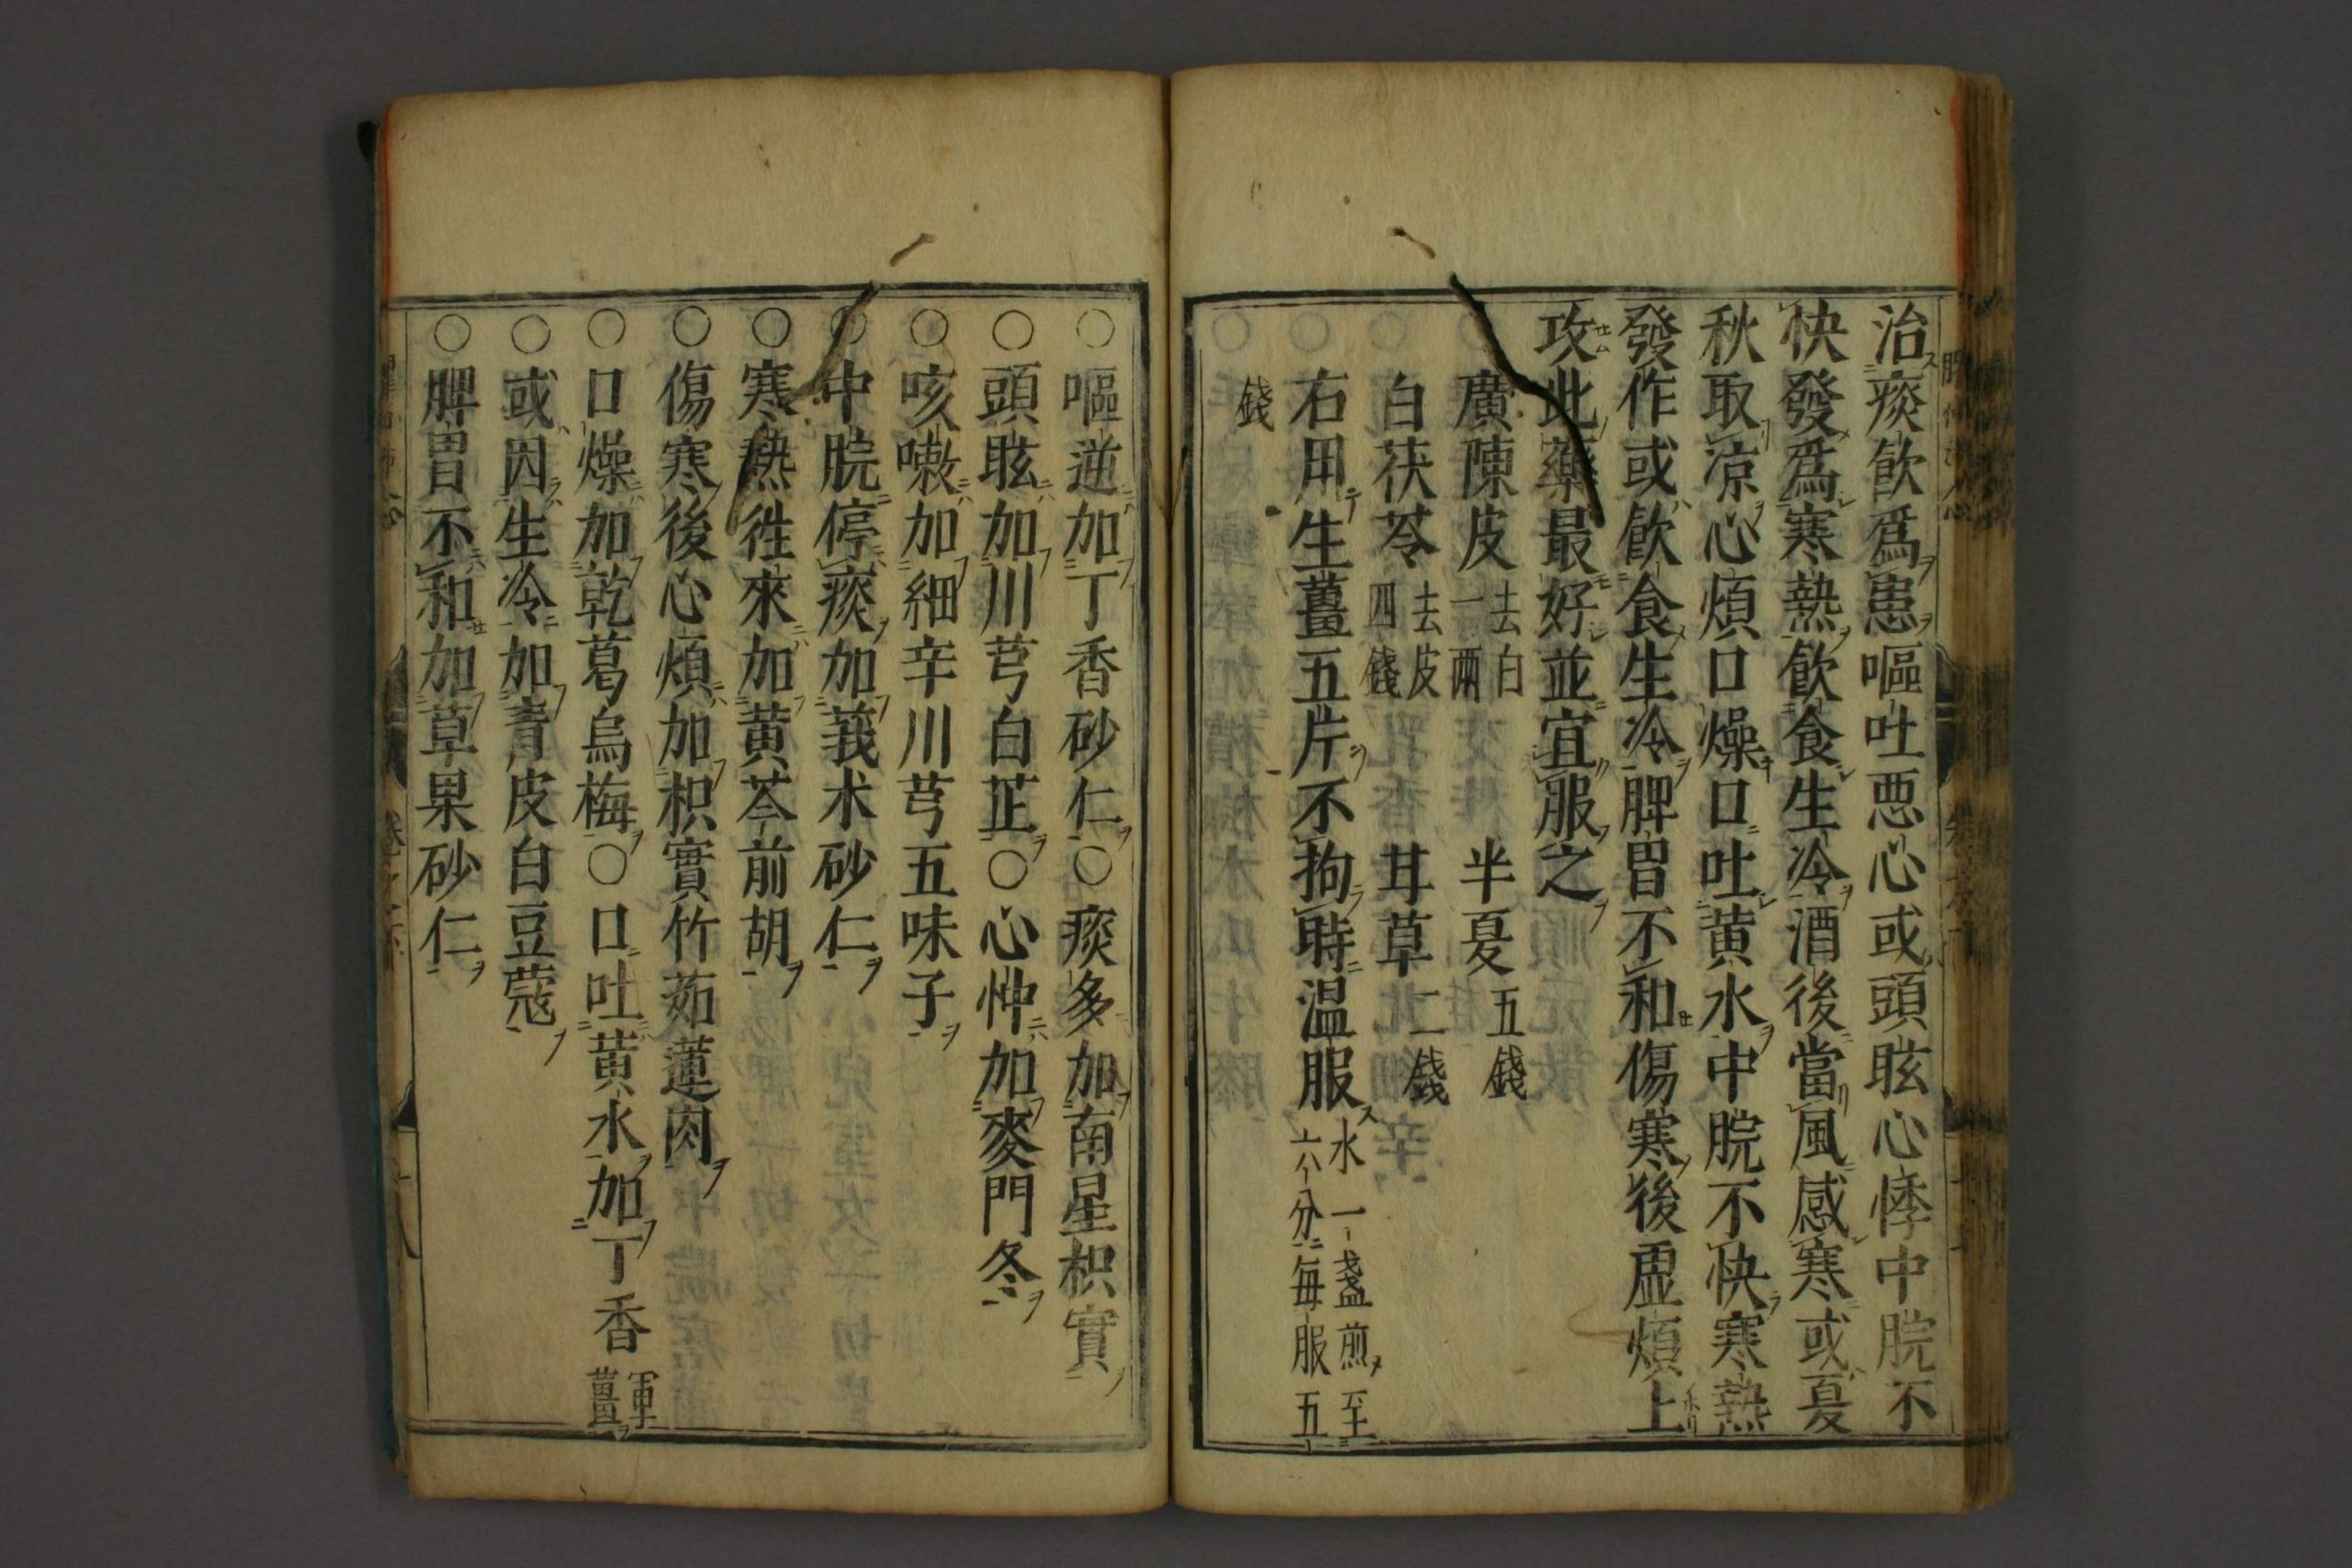 治痰飲爲患嘔吐悪心或頭眩心悸中脘不
快發爲寒熱飲食生冷酒後當風感寒或夏
秋取涼心煩口燥口吐黄水中脘不快寒熱
發作或飲食生冷脾胃不和傷寒後虚煩上
攻此藥最好並宜服之
廣陳皮去白一兩 半夏五錢
白茯苓去皮四錢 甘草二錢
右用生薑五片不拘時温服水一盞煎至六分毎服五
錢
○嘔逆加丁香砂仁○痰多加南星枳實
○頭眩加川芎白芷○心忡加麥門冬
○咳嗽加細辛川芎五味子
○中脘停痰加莪术砂仁
○寒熱徃來加黄芩前胡
○傷寒後心煩加枳實竹茹蓮肉
○口燥加乾葛烏梅○口吐黄水加丁香軍薑
○或因生冷加青皮白豆蔻
○脾胃不和加草果砂仁